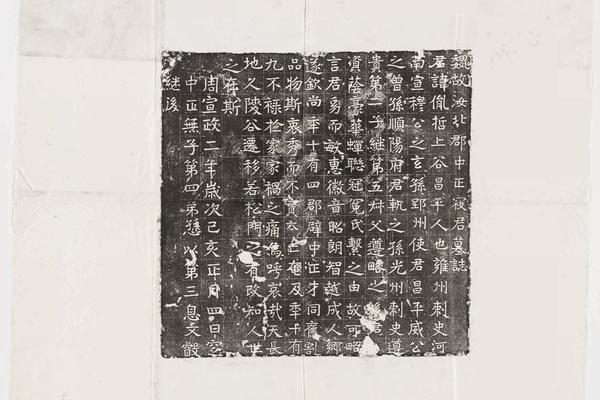 魏故汝北郡中正寇君墓誌
君諱胤哲上谷昌平人也雍州刺史河
南宣穆公之玄孫郢州使君昌平威公
之曾孫順陽府君軌之孫光州刺史遵
貴第二子継第五叔父遵略之
資蔭豪華蟬聯冠冕氏繫之由故可略
言君易而敏惠徽音昭朗智越成人鄉
遂欽尚年十有四郡辟中正才同舊割
品物斯衷秀而不實奄及年廿有
九不祿於家家禍之痛烏呼哀哉天長
地久陵谷遷移若松門之有改知人世
之在斯
周宣政二年歲次己亥正月四日窆
中正無子第四弟慈以第三息文叡
継後